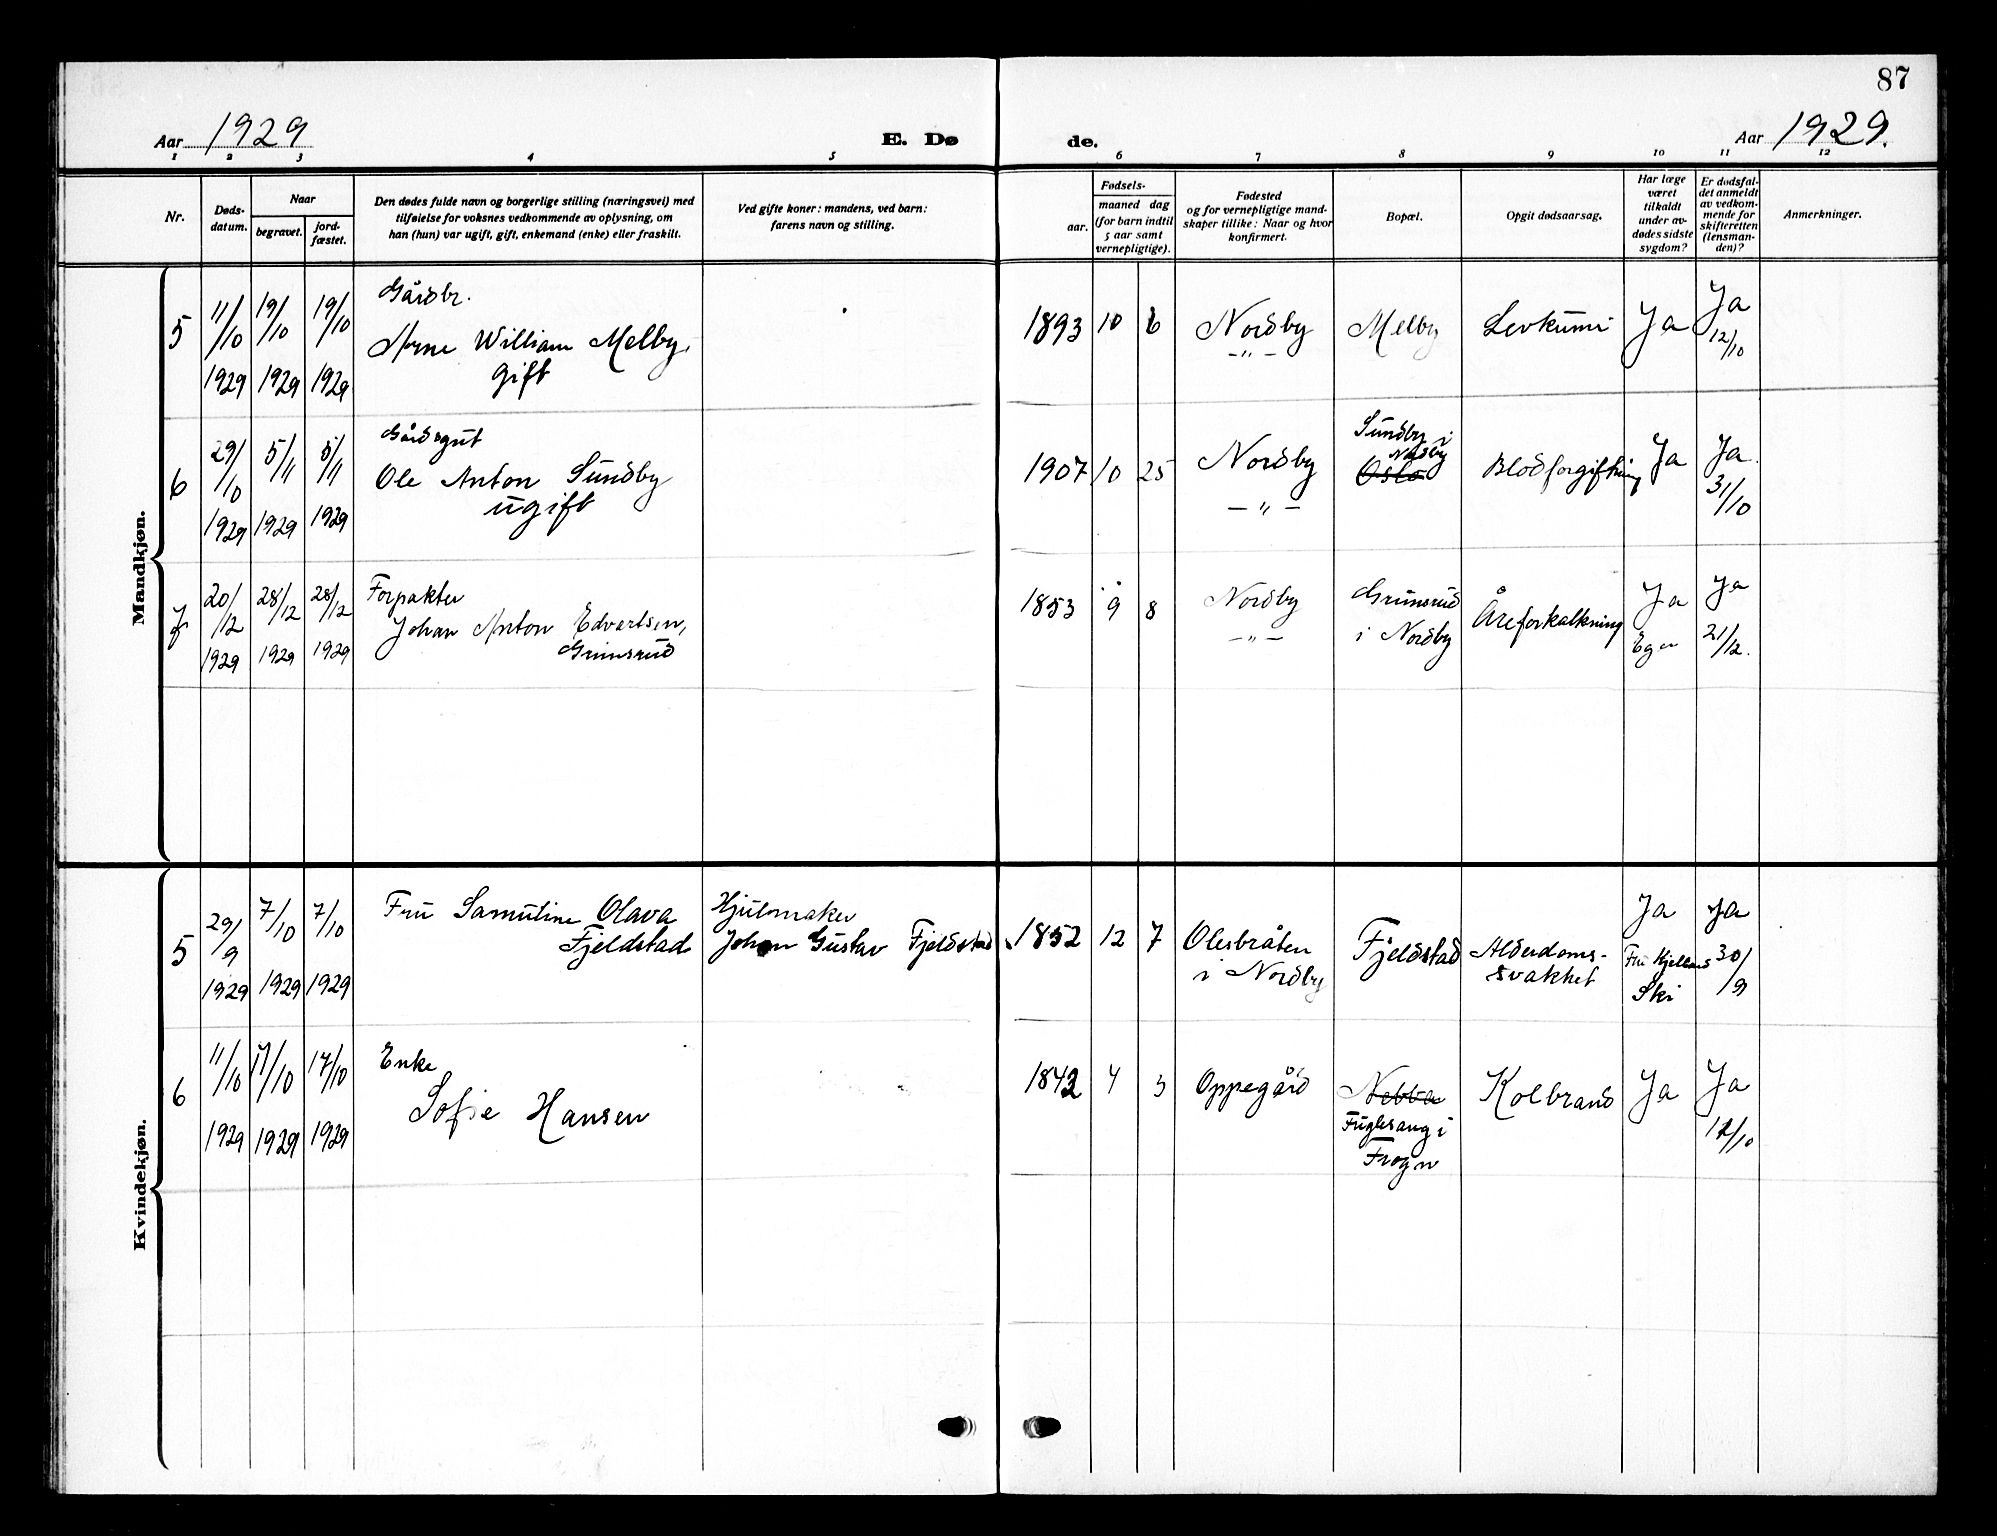 87
Aar 1929
E. Dø
de.
Aar 1929.
1 2 3 4 5 6 7 8 9 10 11 12
Nr.
Døds-
datum.
Naar
begravet.
jord-
fæstet.
Den dødes fulde navn og borgerlige stilling (næringsvei) med
tilføielse for voksnes vedkommende av oplysning, om
han (hun) var ugift, gift, enkemand (enke) eller fraskilt.
Ved gifte koner: mandens, ved barn:
farens navn og stilling.
Fødsels-
aar.
maaned dag
(for barn indtil
5 aar samt
vernepligtige).
Fødested
og for vernepligtige mand-
skaper tillike: Naar og hvor
konfirmert.
Bopæl.
Opgit dødsaarsag.
Har læge
været
tilkaldt
under av-
dødes sidste
sygdom?
Er dødsfal-
det anmeldt
av vedkom-
mende for
skifteretten
(lensman-
den)?
Anmerkninger.
Mandkjøn.
5
11/10
1929
19/10
1929
19/10
1929
Gårdbr.
Arne William Melby,
gift
1893 10 6
Nordby
-"-
Melby
Levkumi
Ja
Ja
12/10
6
29/10
1929
5/11
1929
5/11
1929
Gårdsgut
Ole Anton Sundby
ugift
1907 10 25
Nordby
-"-
Sundby i
Nordby
Oslo
Blodforgiftning
Ja
Ja
31/10
7
20/12
1929
28/12
1929
28/12
1929
Forpakter
Johan Anton Edvartsen,
Grimsrud
1853 9 8
Nordby
-"-
Grimsrud
i Nordby
Åreforkalkning
Ja
Ja
21/12.
Kvindekjøn.
5
29/9
1929
7/10
1929
7/10
1929
Fru Samuline Olava
Fjeldstad
Hjulmaker
Johan Gustav Fjeldstad
1852 12 7
Olesbråten
i Nordby
Fjeldstad
Alderdoms-
svakhet
Ja
Ski
Ja
30/9
6
11/10
1929
17/10
1929
17/10
1929
Enke
Sofie Hansen
1842 4 3
Oppegård
Nebba
Fuglesang i
Frogn
Kolbrand
Ja
Ja
12/10